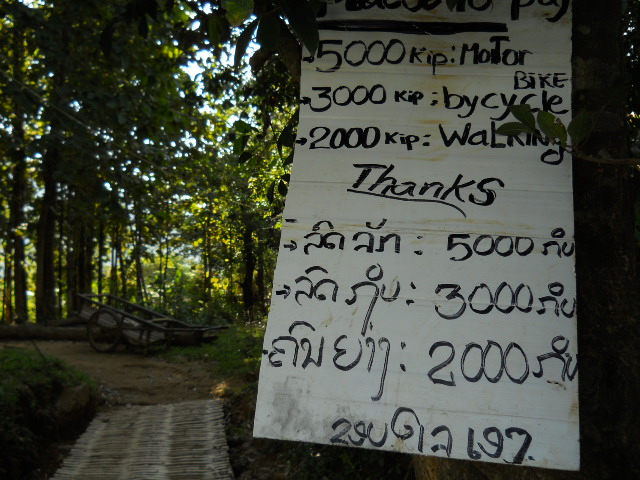 5000 Kip: Motor
BIKE
3000 Kip: bycycle
2000 Kip: WaLKINg
Thanks
ລົດ ຈັກ : 5000 ກີບ
ລົດ ຖີບ: 3000 ກີບ
ຄົນ ຍ່າງ: 2000 ກີບ
ຂອບໃຈ